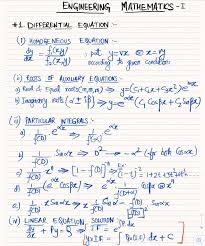 ENGINEERING MATHEMATICS - I
#1. DIFFERENTIAL EQUATION :-
(i) HOMOGENEOUS EQUATION :-
dy/dx = f₁(x,y)/f₂(x,y) ; put y=vx or x=vy
according to given condition
(ii) ROOTS OF AUXILIARY EQUATIONS :-
a) Real & Equal roots (m,m,m) ⇒ y=(C₁+C₂x+C₃x²)e
b) Imaginary roots (α±iβ) ⇒ y=e^αx (C₁cosβx+C₂Sinβx)
(iii) PARTICULAR INTEGRALS :-
a) 1/f(D) e^αx ⇒ e^αx/f(α)
b) 1/f(D) Sinαx ⇒ D² → -α² (for both Cosαx)
c) 1/f(D) xⁿ ⇒ [1-f(D)]⁻¹
d) 1/f(D) (e^αx Cosβx)
e) 1/f(D) x Sinαx
(iv) LINEAR EQUATION SOLUTION :-
dy/dx + Py = Q
y×IF = ∫ Q×(I.F) dx + C